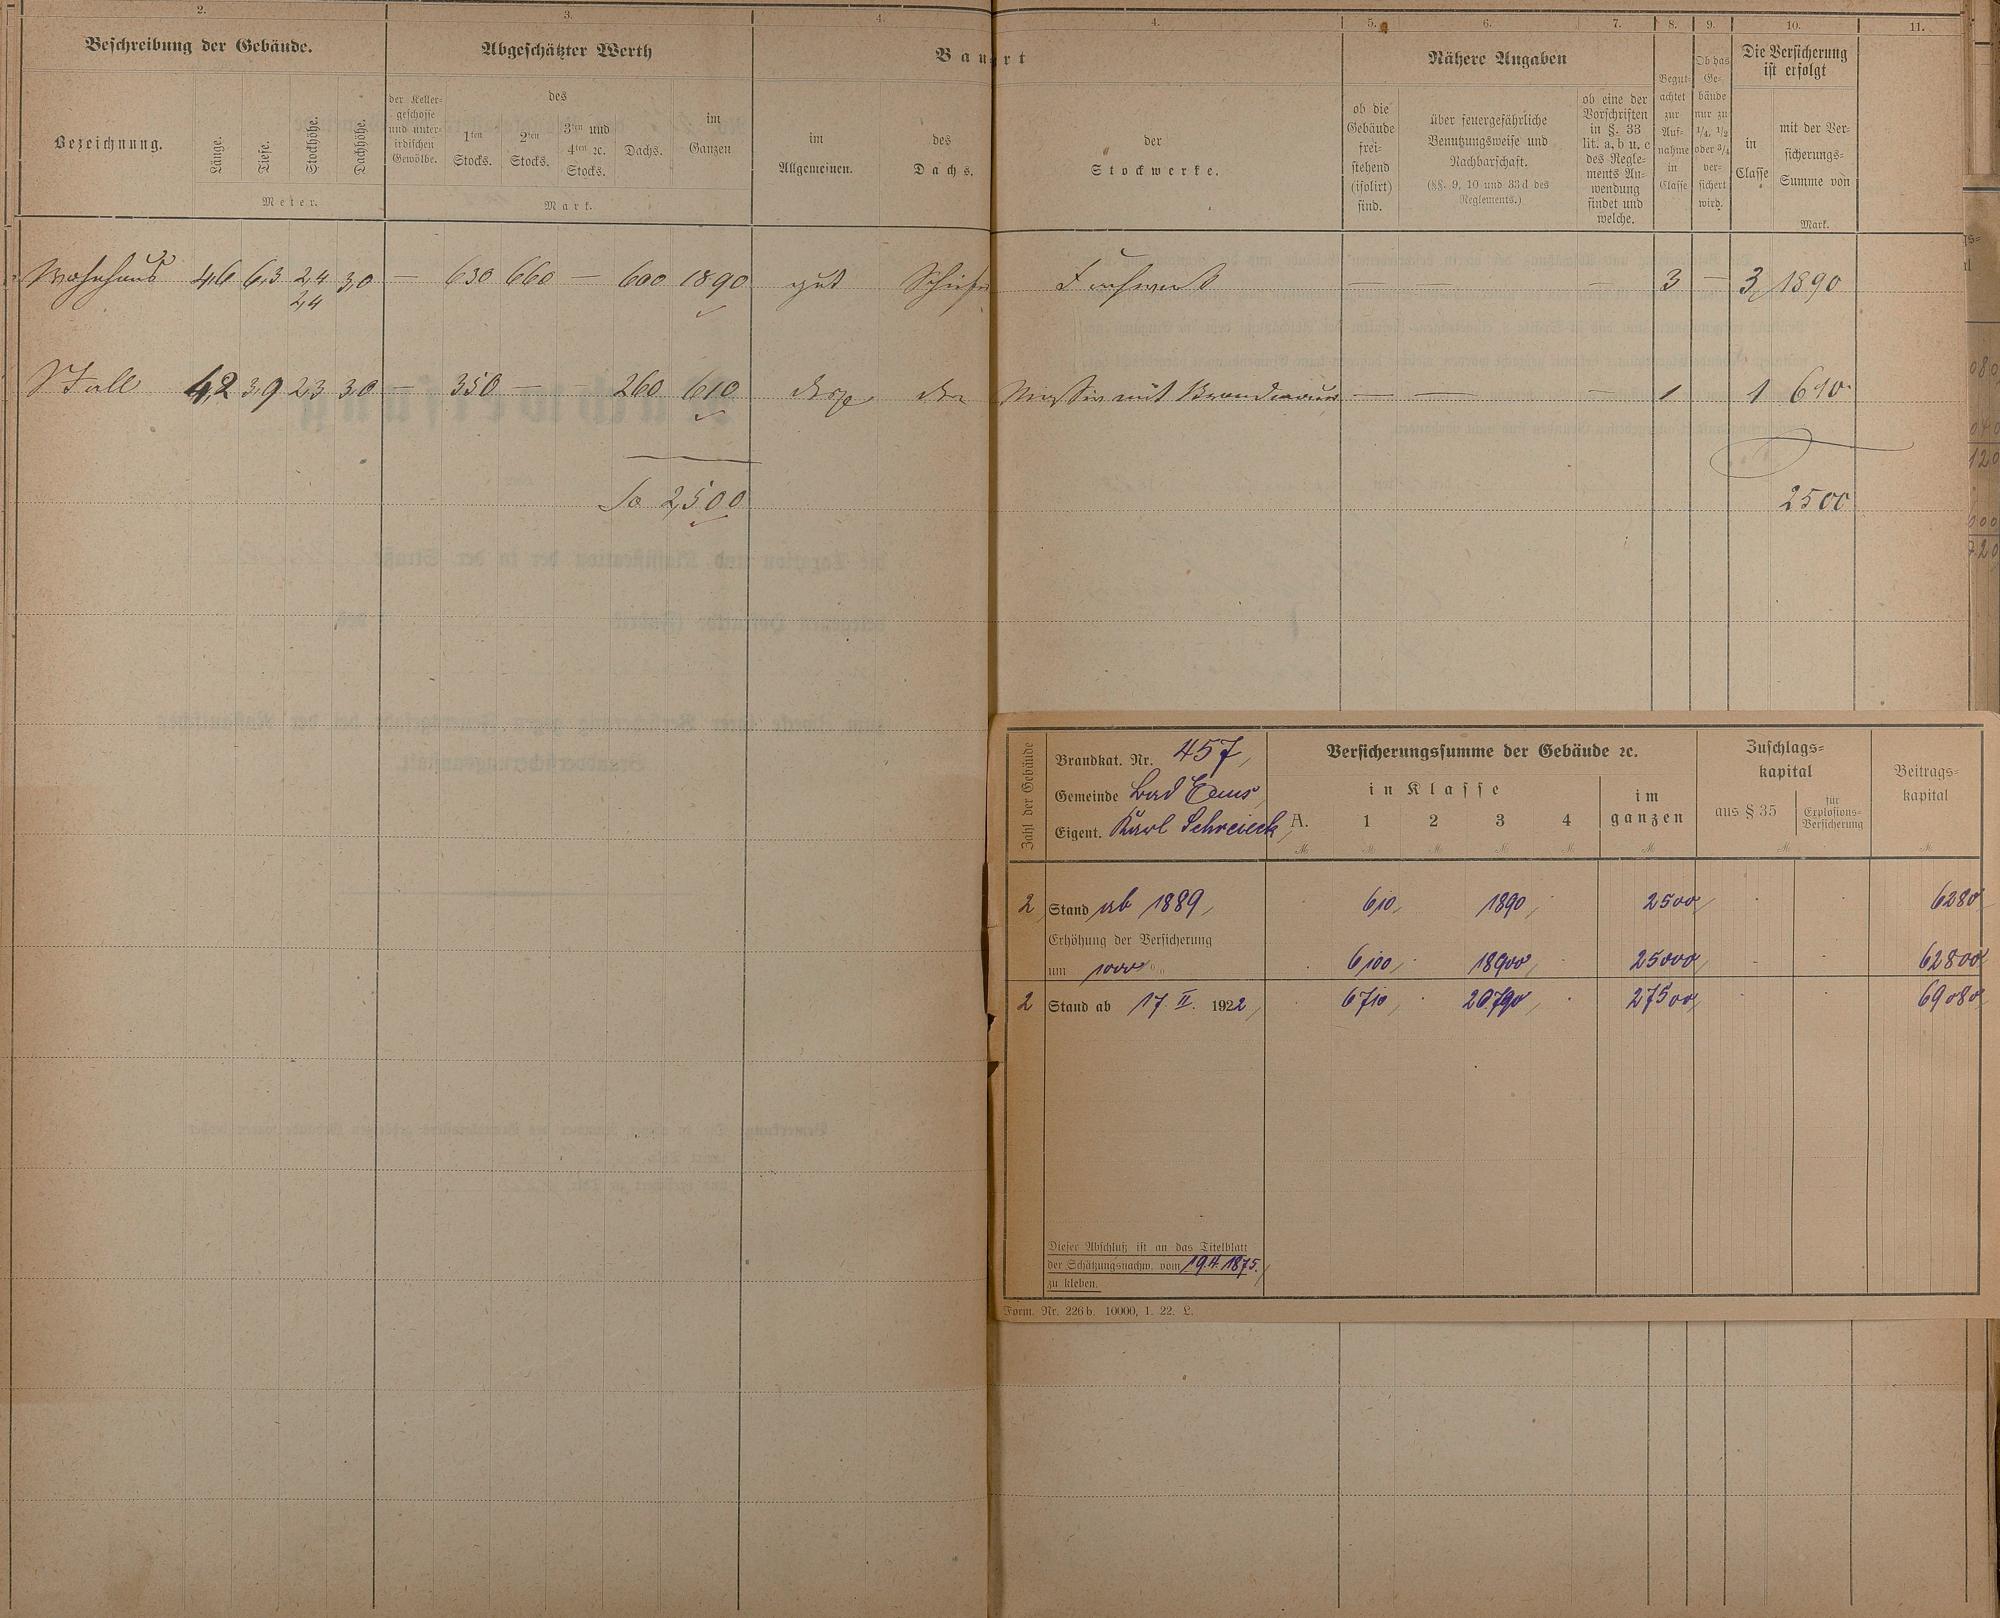 2.
3.
4.
4.
5.
6.
7.
8.
9.
10.
11.
Beschreibung der Gebäude.
Abgeschätzter Werth
Bauart
Nähere Angaben
Die Versicherung
ist erfolgt
Bezeichnung.
Länge.
Tiefe.
Stockhöhe.
Dachhöhe.
Meter.
der Keller-
geschosse
und unter-
irdischen
Gewölbe.
des
1ten
Stocks.
2ten
Stocks.
3ten und
4ten ꝛc.
Stocks.
Dachs.
im
Ganzen
Mark.
im
Allgemeinen.
des
Dachs.
der
Stockwerke.
ob die
Gebäude
frei-
stehend
(isolirt)
sind.
über feuergefährliche
Benutzungsweise und
Nachbarschaft.
(§§. 9, 10 und 33d des
Reglements.)
ob eine der
Vorschriften
in §. 33
lit. a, b u. c
des Regle-
ments An-
wendung
findet und
welche.
Begut-
achtet
zur
Auf-
nahme
in
Classe
Ob das
Ge-
bäude
nur zu
1/4, 1/2
oder 3/4
ver-
sichert
wird.
in
Classe
mit der Ver-
sicherungs-
Summe von
Mark.
Wohnhaus 4,6 6,3 2,4 3,0 — 630 660 — 600 1890 gut Schiefer Fachwerk — — — 3 — 3 1890
2,4
Stall 4,2 3,9 2,3 3,0 — 350 — — 260 610 Massiv mit Brandmauer — — — 1 1 610
Sa 2,500
2500
Zahl der Gebäude
Brandkat. Nr. 457,
Gemeinde Bad Ems,
Eigent. Karl Schreieck,
Versicherungssumme der Gebäude ꝛc.
in Klasse
A. 1 2 3 4
im
ganzen
Zuschlags-
kapital
aus § 35
für
Explosions-
Versicherung
Beitrags-
kapital
2 Stand ab 1889, 610, 1890, 2500, 6280,
Erhöhung der Versicherung
um 1000 % 6100, 18900, 25000, 62800,
2 Stand ab 17. II. 1922, 6710, 20790, 27500, 69080,
Dieser Abschluß ist an das Titelblatt
der Schätzungsnachw. vom 19.4.1875.
zu kleben.
Form. Nr. 226b. 10000, 1. 22. L.